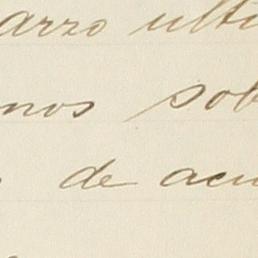 arzo ulti
nos sob
de acu